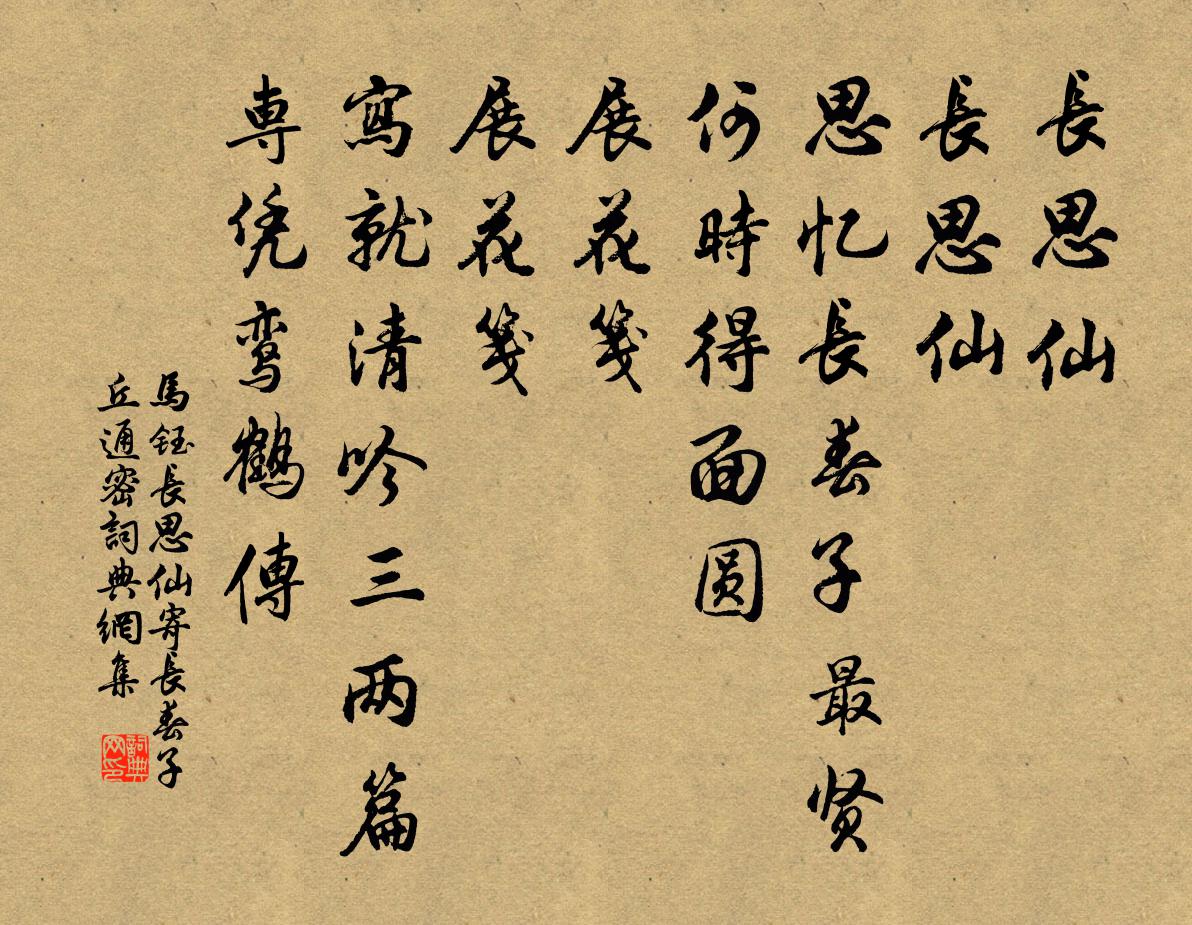 長思仙
長思仙
思忆長春子最贤
何時得面圆
展花笺
展花笺
寫就清吟三两篇
専凭鸾鶴傳
馬鈺長思仙寄長春子
丘通密詞典網集
詞典
网印